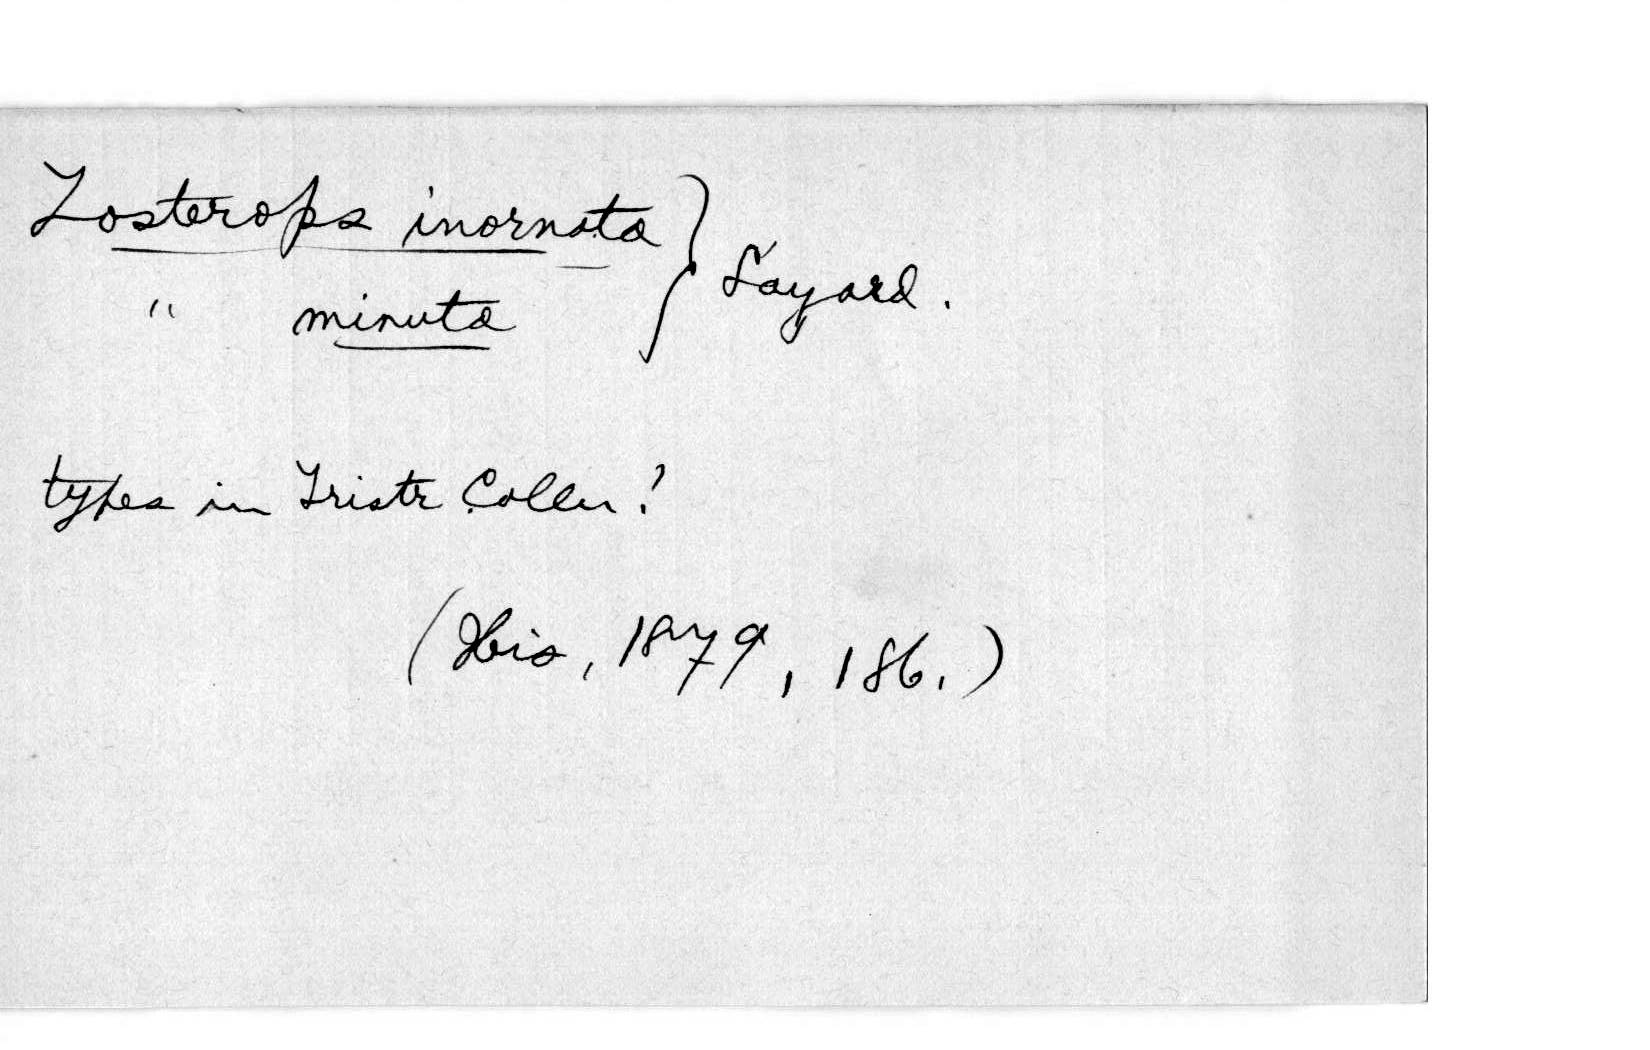 Zosterops inornata } Layard.
" minuta
types in Tristr. Colln!
(Ibis, 1879, 186.)